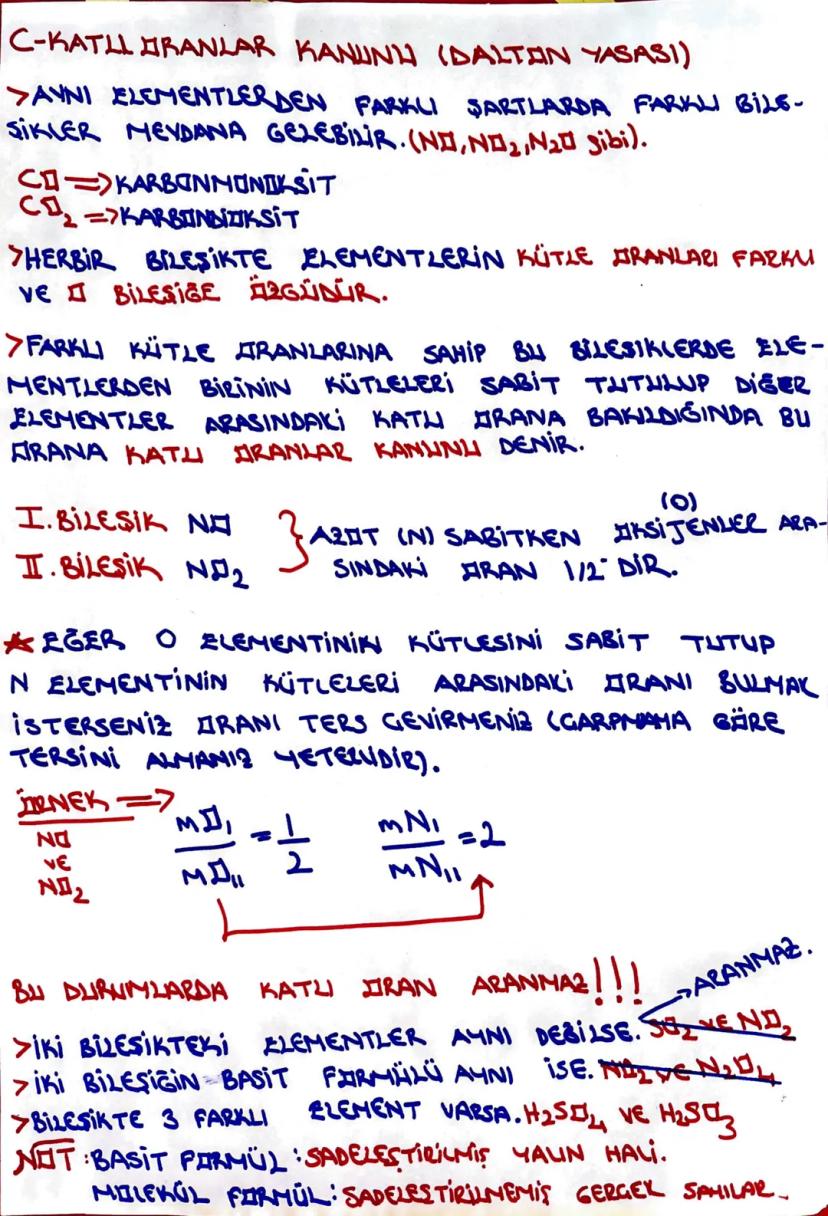 C-KATLI ORANLAR KANUNU (DALTON YASASI)
>AYNI ELEMENTLERDEN FARKLI ŞARTLARDA FARKLI BİLE-
ŞİKLER MEYDANA GELEBİLİR.(NO,NO₂,N₂O gibi).
CO => KARBONMONOKSİT
CO₂ => KARBONDİOKSİT
>HERBİR BİLEŞİKTE ELEMENTLERİN KÜTLE ORANLARI FARKLI
VE O BİLEŞİĞE ÖZGÜDÜR.
>FARKLI KÜTLE ORANLARINA SAHİP BU BİLEŞİKLERDE ELE-
MENTLERDEN BİRİNİN KÜTLELERİ SABİT TUTULUP DİĞER
ELEMENTLER ARASINDAKİ KATLI ORANA BAKILDIĞINDA BU
ORANA KATLI ORANLAR KANUNU DENİR.
(O)
I. BİLEŞİK NO } AZOT (N) SABİTKEN OKSİJENLER ARA-
II. BİLEŞİK NO₂ SINDAKİ ORAN 1/2' DİR.
★ EĞER O ELEMENTİNİN KÜTLESİNİ SABİT TUTUP
N ELEMENTİNİN KÜTLELERİ ARASINDAKİ ORANI BULMAK
İSTERSENİZ ORANI TERS ÇEVİRMENİZ (ÇARPMAYA GÖRE
TERSİNİ ALMANIZ YETERLİDİR).
ÖRNEK =>
NO
VE
NO₂
mO₁/mO₁₁ = 1/2 mN₁/mN₁₁ = 2
BU DURUMLARDA KATLI ORAN ARANMAZ!!!
→ARANMAZ.
>İKİ BİLEŞİKTEKİ ELEMENTLER AYNI DEĞİLSE. SO₂ VE NO₂
>İKİ BİLEŞİĞİN BASİT FORMÜLÜ AYNI İSE. NO₂ VE N₂O₄
>BİLEŞİKTE 3 FARKLI ELEMENT VARSA. H₂SO₄ VE H₂SO₃
NOT: BASİT FORMÜL: SADELEŞTİRİLMİŞ YALIN HALİ.
MOLEKÜL FORMÜL: SADELEŞTİRİLMEMİŞ GERÇEK SAYILAR.